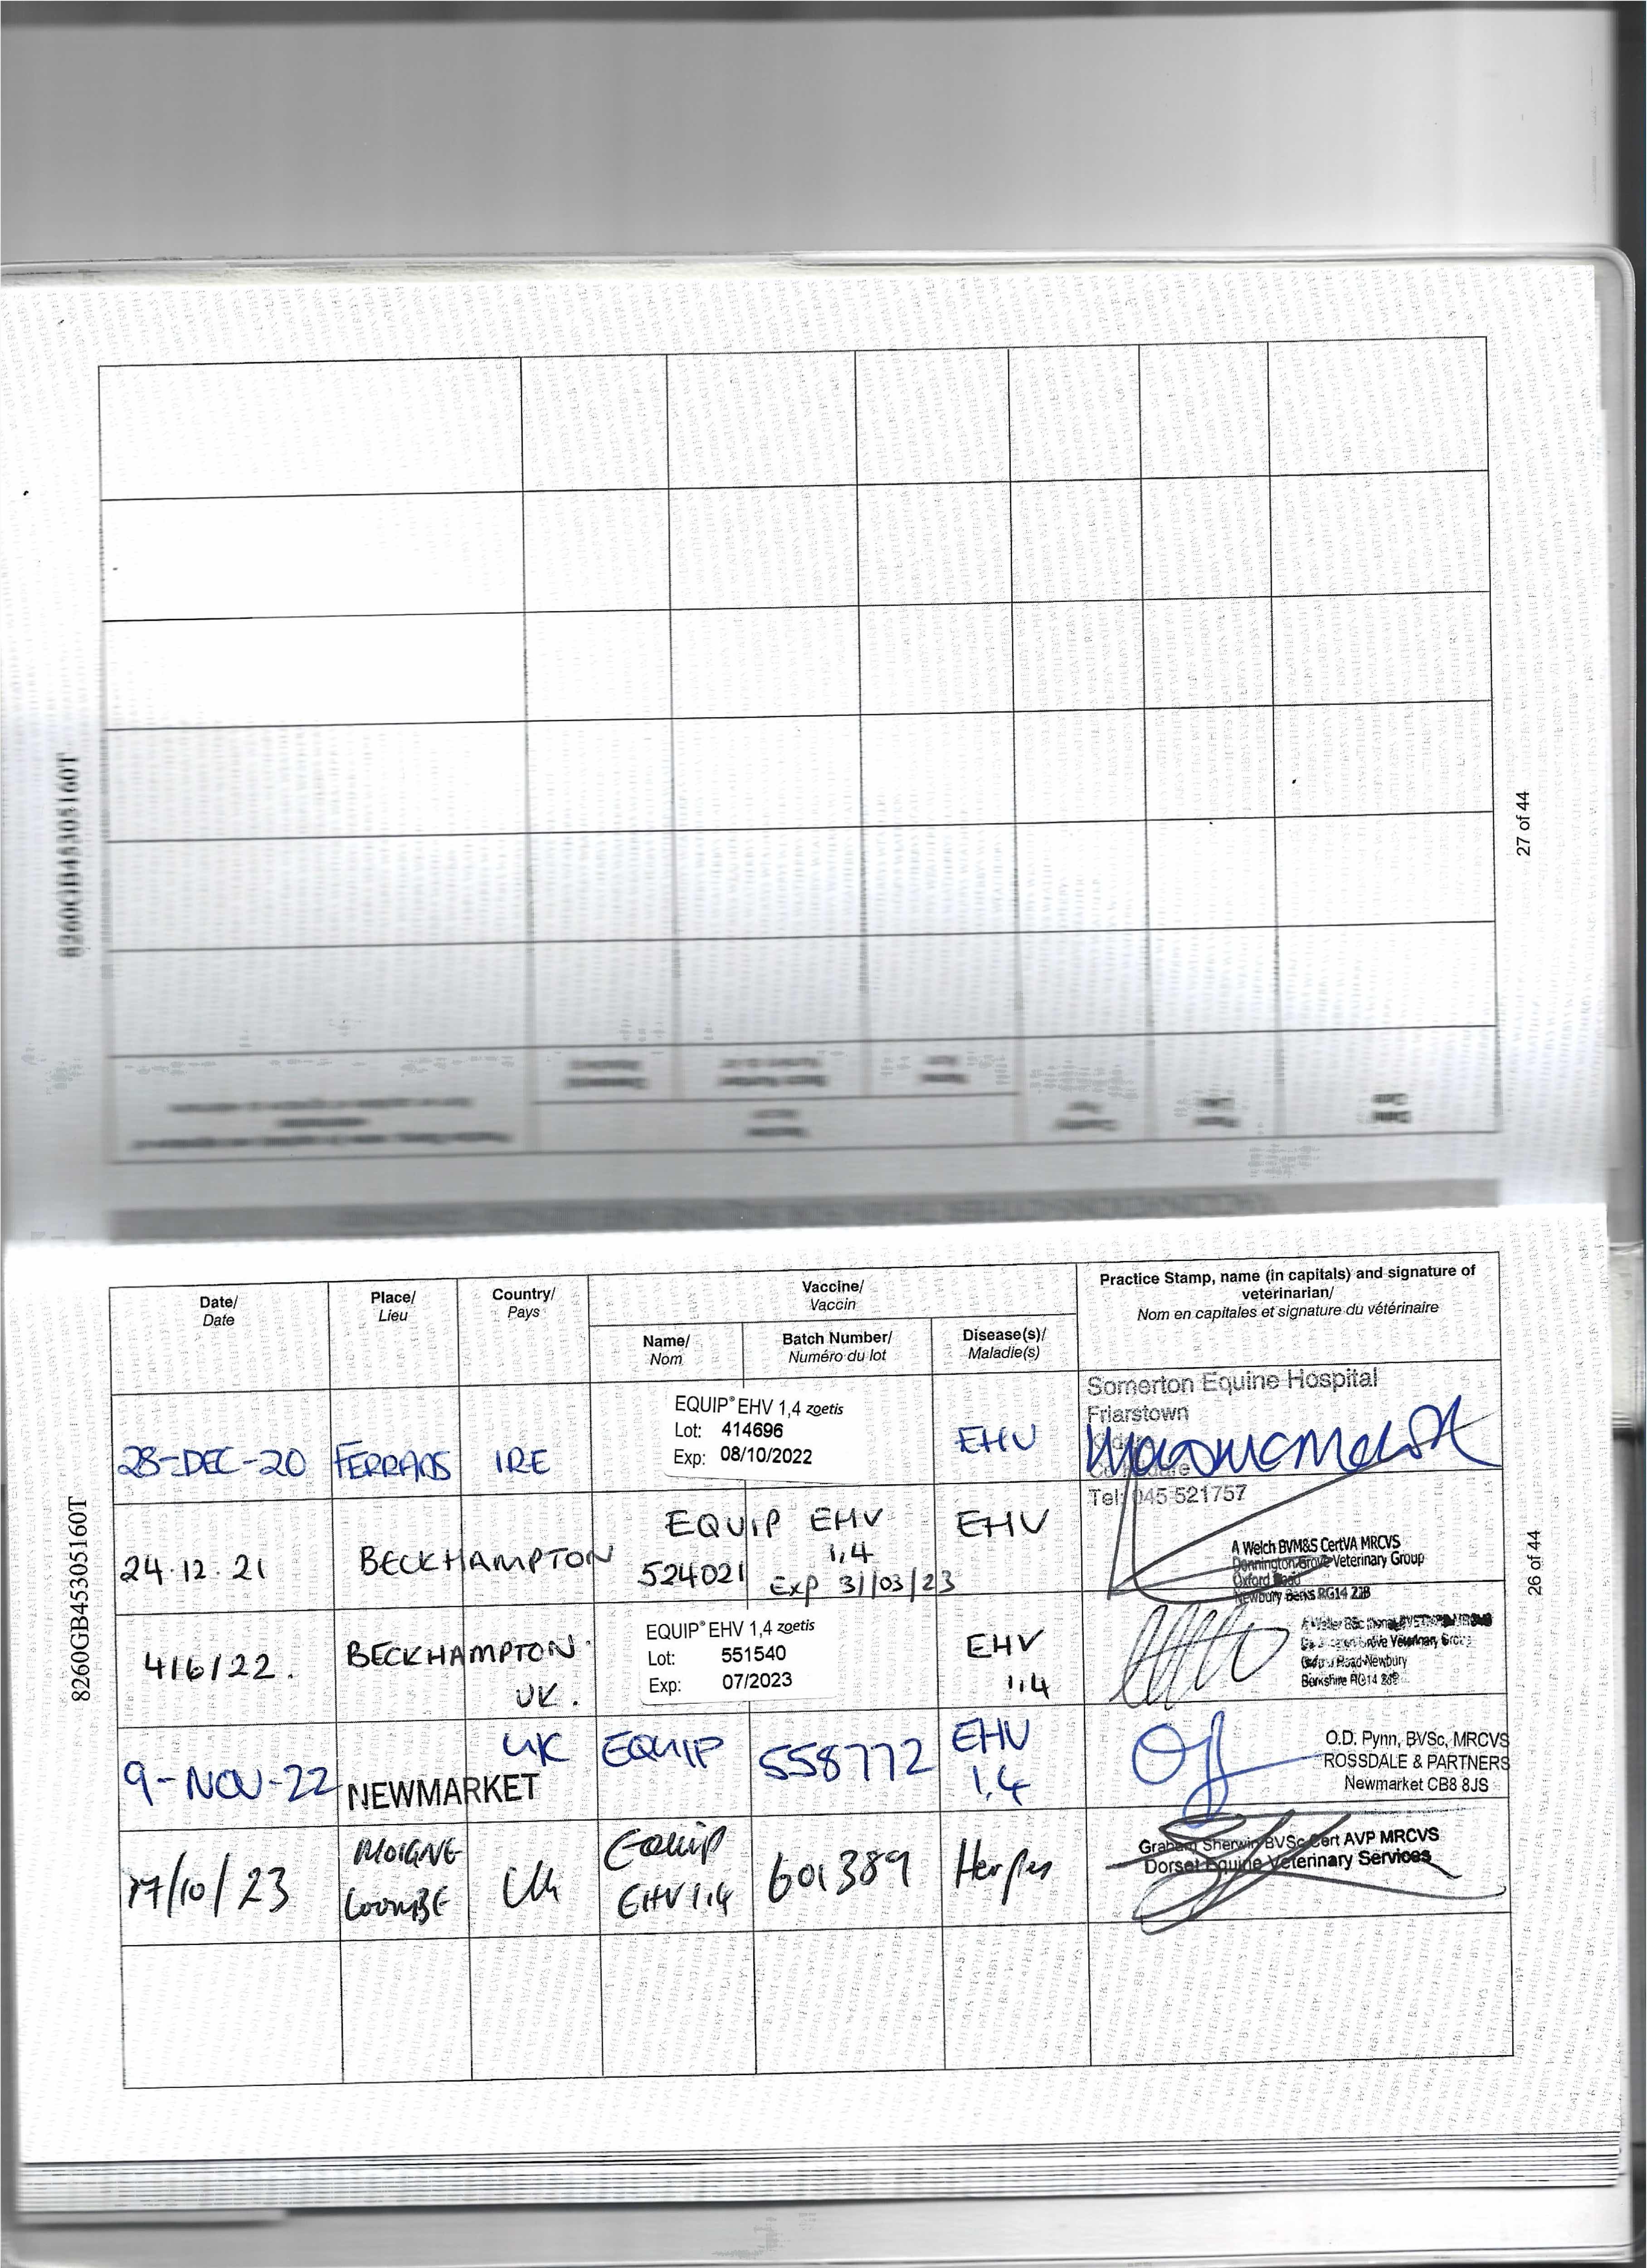 8260GB45305160T
27 of 44
Date/
Date
Place/
Lieu
Country/
Pays
Vaccine/
Vaccin
Name/
Nom
Batch Number/
Numéro du lot
Disease(s)/
Maladie(s)
Practice Stamp, name (in capitals) and signature of
veterinarian/
Nom en capitales et signature du vétérinaire
28-DEC-20
FERRANS
IRE
EQUIP® EHV 1,4 zoetis
Lot: 414696
Exp: 08/10/2022
EHV
Somerton Equine Hospital
Friarstown
Tel: 045 521757
24.12.21
BECKHAMPTON
EQUIP EHV
1,4
524021
Exp 31/03/23
EHV
A Welch BVM&S CertVA MRCVS
Donnington Grove Veterinary Group
Oxford Road
Newbury Berks RG14 2JB
4/6/22.
BECKHAMPTON
UK.
EQUIP® EHV 1,4 zoetis
Lot: 551540
Exp: 07/2023
EHV
1,4
Grove Veterinary Group
Oxford Road Newbury
Berkshire RG14
9-NOV-22
NEWMARKET
UK
EQUIP
558772
EHV
1,4
O.D. Pynn, BVSc, MRCVS
ROSSDALE & PARTNERS
Newmarket CB8 8JS
17/10/23
MOIGNE
COOMBE
UK
Equip
EHV 1,4
601389
Herpes
Graham Sherwin BVSc Cert AVP MRCVS
Dorset Equine Veterinary Services
8260GB45305160T
26 of 44